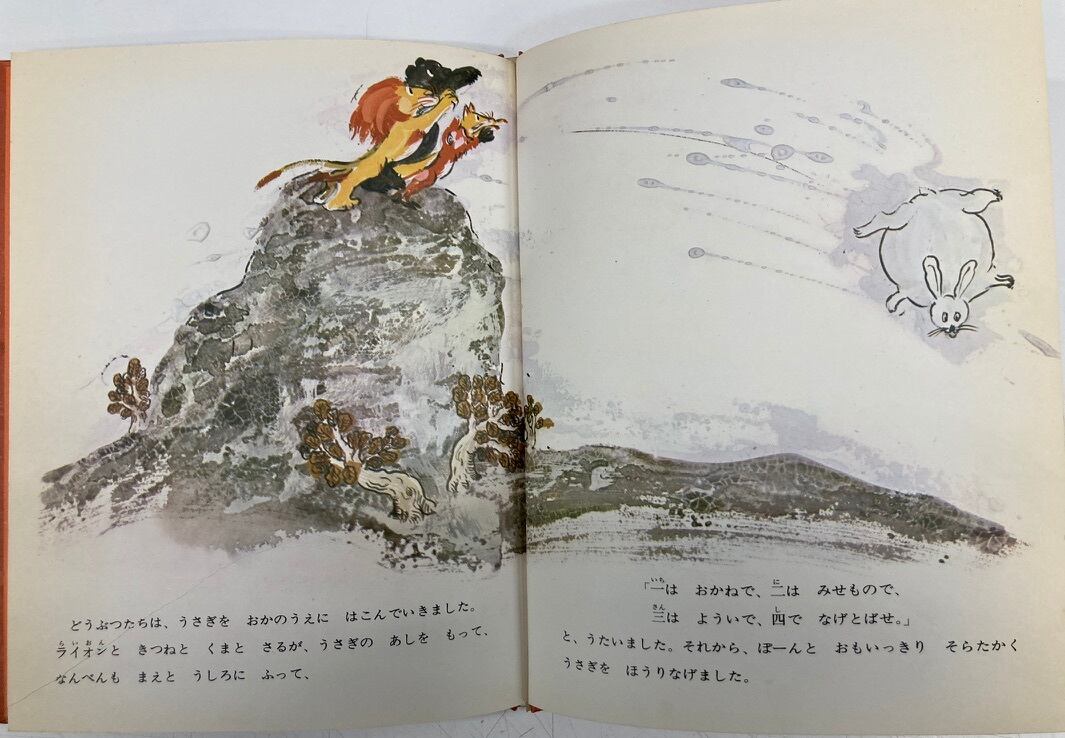 どうぶつたちは、うさぎを おかのうえに はこんでいきました。
ライオンと きつねと くまと さるが、うさぎの あしを もって、
なんべんも まえと うしろに ふって、
「一は おかねで、二は みせもので、
三は よういで、四で なげとばせ。」
と、うたいました。それから、ぽーんと おもいっきり そらたかく
うさぎを ほうりなげました。